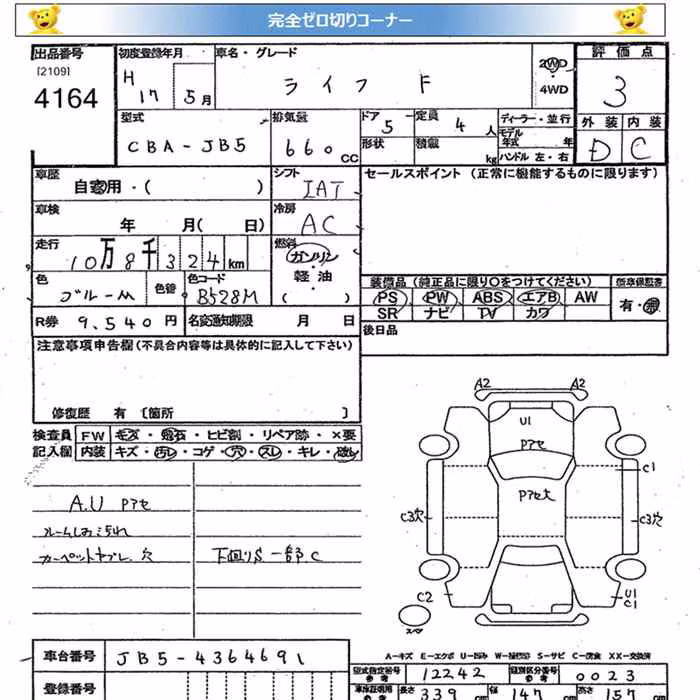 完全ゼロ切りコーナー
出品番号
[2109]
4164
初度登録年月
H 17 5月
車名・グレード
ライフ F
2WD
4WD
評価点
3
型式
CBA-JB5
排気量
660cc
ドア
5
形状
定員
4人
積載
kg
ディーラー・並行
モデル年式 年
ハンドル 左・右
外装 内装
D C
車歴
自家用・( )
シフト
IAT
セールスポイント(正常に機能するものに限ります)
車検
年 月( 日)
冷房
AC
走行
10万8千324km
燃料
ガソリン・軽油
( )
色
ブルーM
色替
色コード
B528M
装備品(純正品に限り○をつけてください)
PS PW ABS エアB AW
SR ナビ TV カワ
新車保証書
有・無
R券 9,540円
名変通知期限 月 日
後日品
注意事項申告欄(不具合内容等は具体的に記入して下さい)
修復歴 有 [箇所 ]
検査員 FW キズ・飛石・ヒビ割・リペア跡・×要
記入欄 内装 キズ・汚レ・コゲ・穴・スレ・キレ・破レ
A.U Pアセ
ルームしみ汚れ
カーペットヤブレ.穴
下回りS 一部C
A2 A2
U1
Pアセ
Pアセ大
C1
C3穴 C3穴
C2
U1
C1
スペア
A-キズ E-エクボ U-凹み W-補修跡 S-サビ C-腐食 XX-交換済
車台番号 JB5-4364691
登録番号
型式指定番号 参考 12242
類別区分番号 参考 0023
車体証明用 参考 長さ 339cm 幅 147cm 高さ 157cm